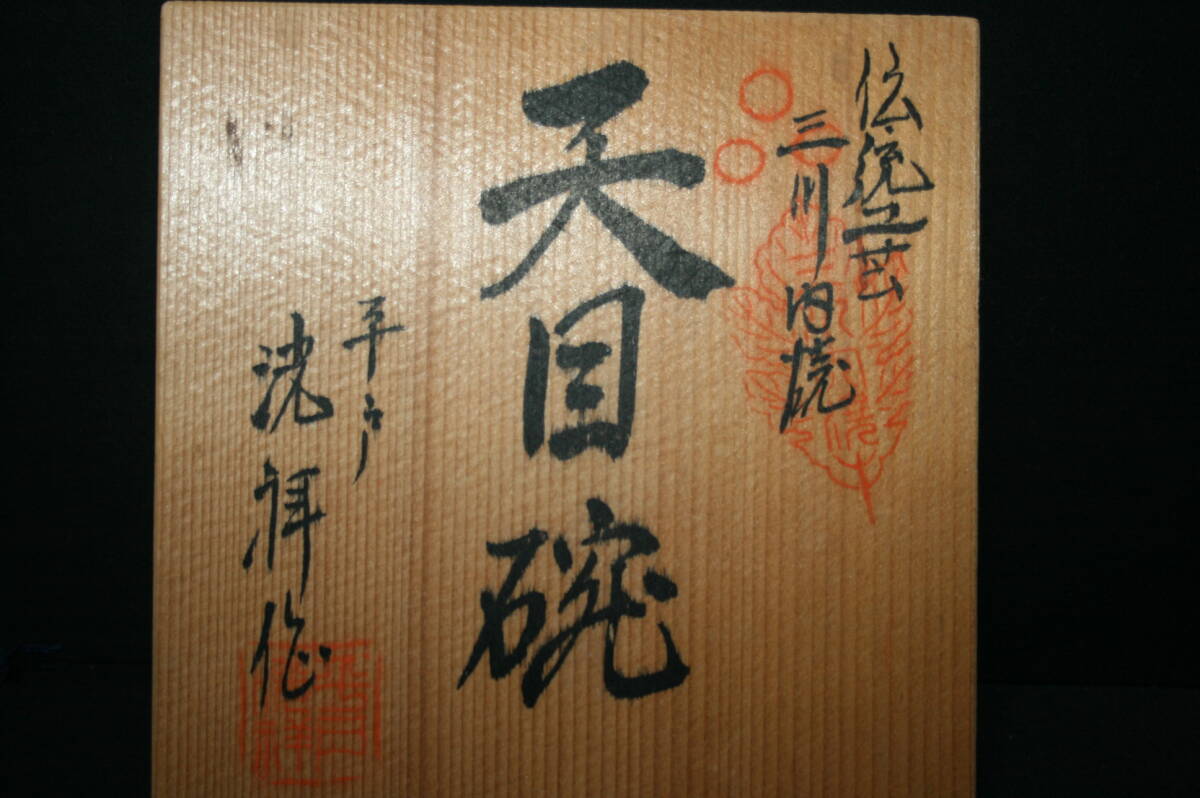 伝統工芸
三川内焼
天目碗
平戸
洸祥作